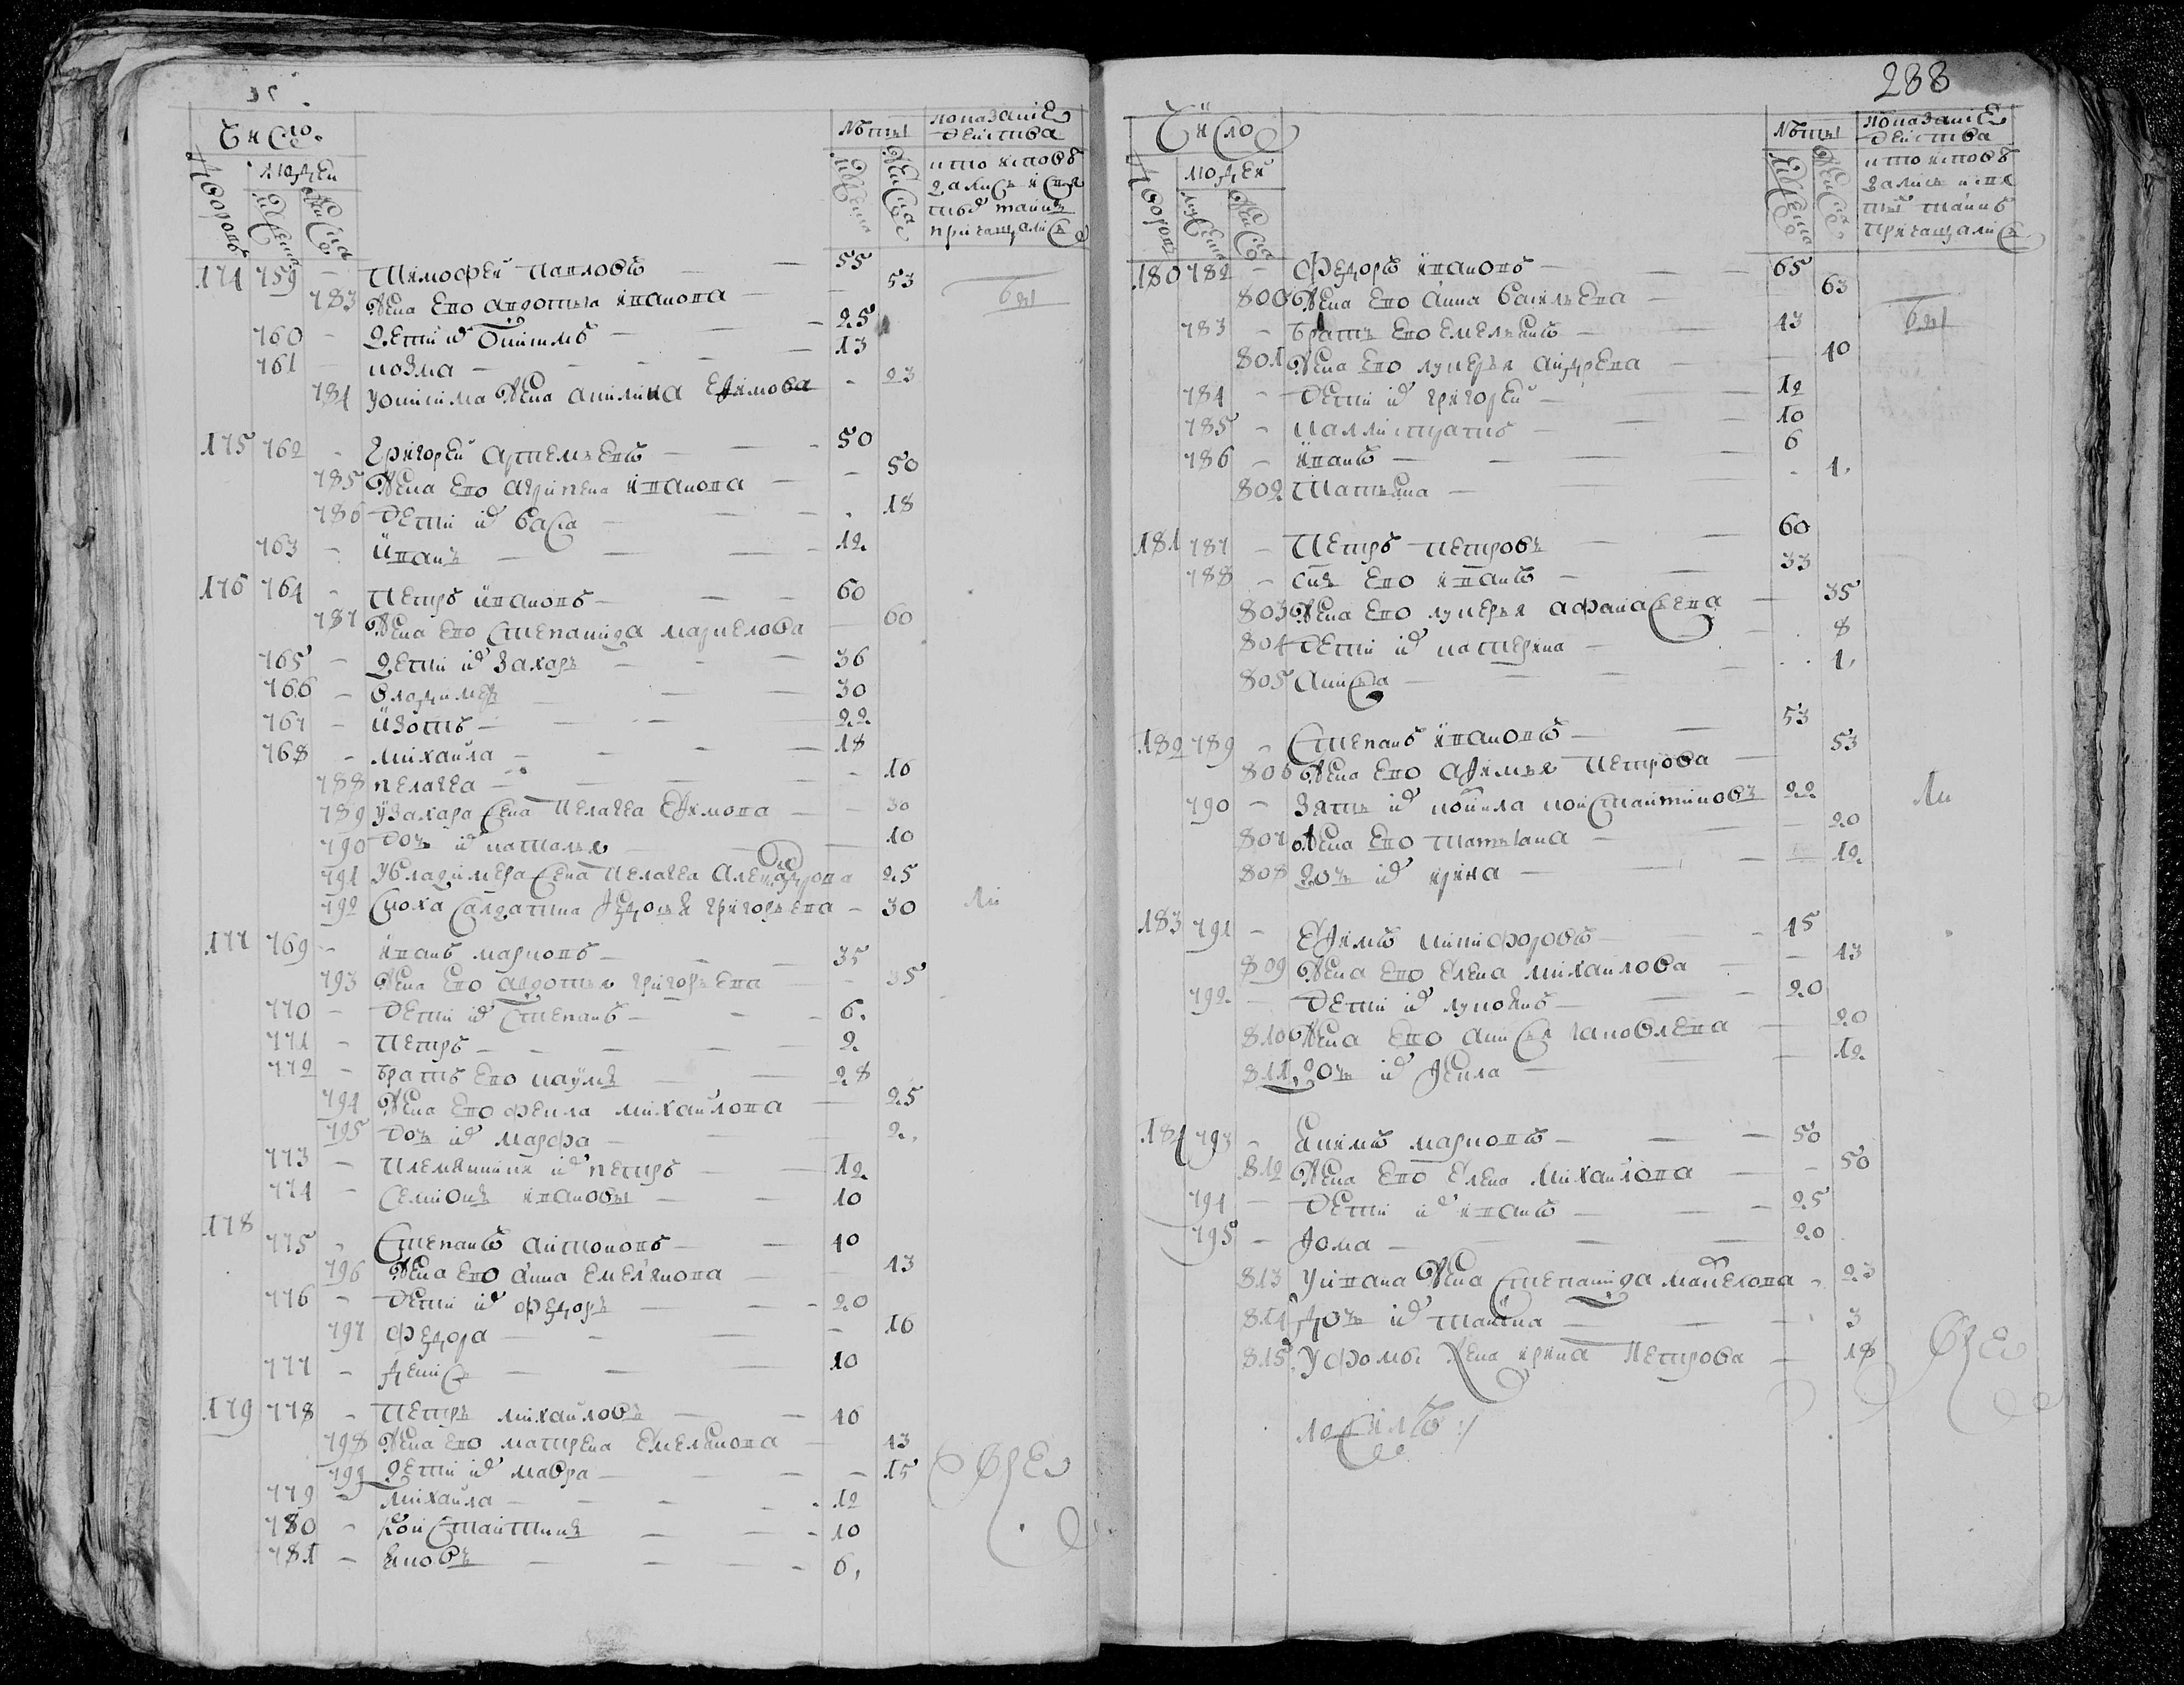 Число
Дворовъ
людей
мужеска
женска
Лѣты
мужеска
женска
показаніе
действа
кто исповѣ
дались и свя
тыхъ таинъ
причащались
174 759 - Тимофей Павловъ - 55
783 Жена Ево авдотья иванова - 53
760 - Дети ихъ Онисимъ - 25
761 - козма - 13
784 у онисима жена акилина Ефимова - 23
175 762 - Григорей Артемьевъ - 50
785 Жена Ево агрипена иванова - 50
786 Дети ихъ васса - 18
763 - иванъ - 12
176 764 - Петръ ивановъ - 60
787 Жена Ево Степанида маркелова 60
765 - Дети ихъ Захаръ - 36
766 - владимеръ - 30
767 - изотъ - 22
768 - михаила - 18
788 пелагея - 16
789 у Захара жена Пелагея Ефимова - 30
790 Дочь ихъ наталья 10
791 у владимера жена Пелагея Александрова 25
792 Сноха Салдатка Федосья григорьева - 30
177 769 - иванъ марковъ - 35
793 Жена Ево авдотья григорьева - 35
770 - Дети ихъ Степанъ - 6
771 - Петръ - 2
772 - братъ Ево наумъ - 28
794 Жена Ево фекла михайлова 25
795 Дочь ихъ марфа - 2
773 - Племянники ихъ петръ - 12
774 - Семионъ ивановы - 10
178 775 - Степанъ антоновъ - 40
796 Жена Ево анна Емельянова 43
776 - Дети ихъ федоръ - 20
797 федора - 16
777 - Денисъ - 10
179 778 - Петръ михайловъ - 46
798 Жена Ево матрена Емельянова 43
799 Дети ихъ мавра - 15
779 - михаила - 12
780 - Константинъ - 10
781 - яковъ - 6
288
Число
Дворовъ
людей
мужеска
женска
Лѣты
мужеска
женска
показаніе
действа
кто исповѣ
дались и свя
тыхъ таинъ
причащались
180 782 - Федоръ ивановъ - 65
800 Жена Ево анна васильева - 63
783 - братъ Ево Емельянъ - 43
801 Жена Ево лукерья андреева 40
784 - Дети ихъ григорей - 12
785 - каллистратъ - 10
786 - иванъ - 6
802 Татьяна - 1
181 787 - Петръ петровъ - 60
788 - сынъ Ево иванъ - 33
803 Жена Ево лукерья афанасьева - 35
804 Дети ихъ катерина - 8
805 анисья - 1
182 789 - Степанъ ивановъ - 53
806 Жена Ево афимья Петрова - 53
790 - Зять ихъ Констайтиновъ 22
807 Жена Ево Татьяна - 20
808 Дочь ихъ ирина - 12
183 791 - Ефимъ никифоровъ - 45
809 Жена Ево Елена михайлова - 43
792 - Дети ихъ лукоянъ - 20
810 Жена Ево анисья яковлева - 20
811 Дочь ихъ фекла - 12
184 793 - Якимъ марковъ - 50
812 Жена Ево Елена михайлова - 50
794 - Дети ихъ иванъ - 25
795 - Фома - 20
813 у ивана жена Степанида макелова - 23
814 Дочь ихъ - 3
815 у фомы жена ирина петрова - 18